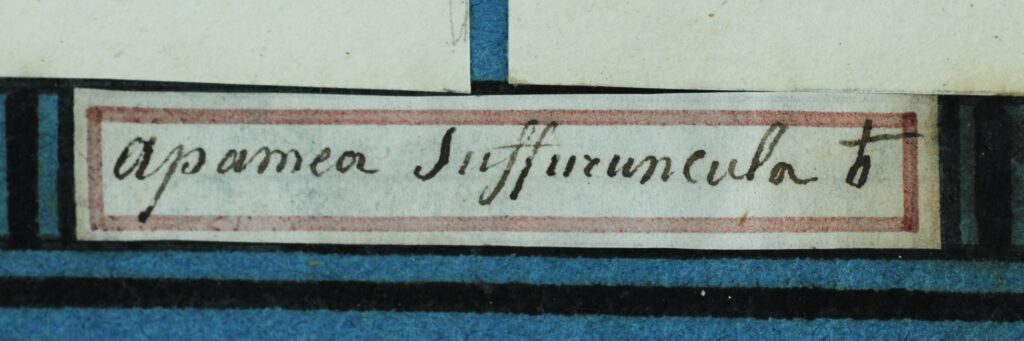 apamea Suffuruncula b